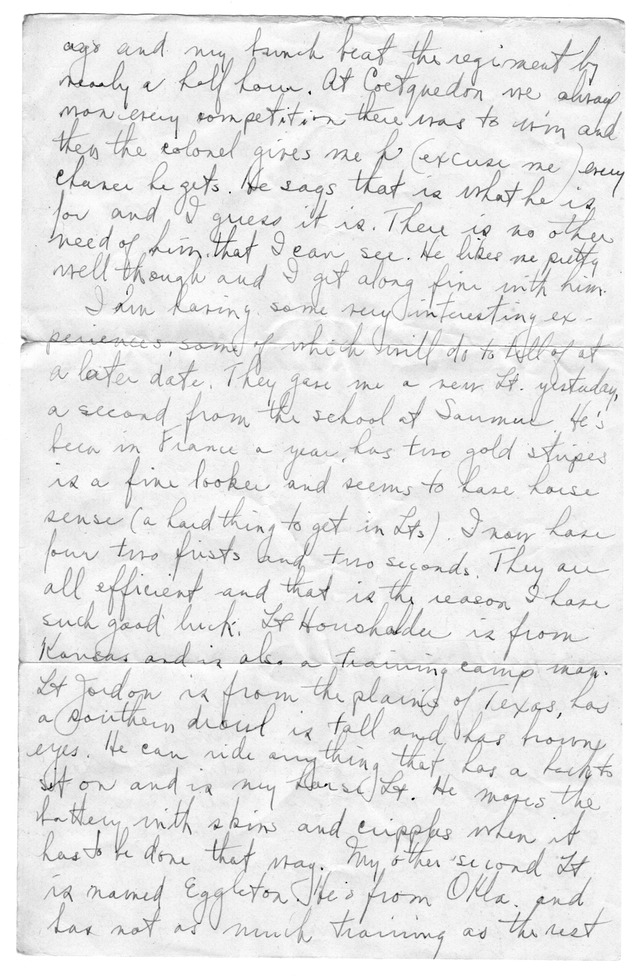 ago and my bunch beat the regiment by
nearly a half hour. At Coetquedon we always
won every competition there was to win and
then the colonel gives me h (excuse me) every
chance he gets. He says that is what he is
for and I guess it is. There is no other
need of him that I can see. He likes me pretty
well though and I get along fine with him.
I am having some very interesting ex-
periences, some of which will do to tell of at
a later date. They gave me a new Lt. yesterday,
a second from the school at Saumur. He's
been in France a year, has two gold stripes
is a fine looker and seems to have horse
sense (a hard thing to get in Lts). I now have
four two firsts and two seconds. They are
all efficient and that is the reason I have
such good luck. Lt Housholder is from
Kansas and is also a training camp man.
Lt Jordon is from the plains of Texas, has
a southern drawl is tall and has brown
eyes. He can ride anything that has a back to
sit on and is my horse Lt. He moves the
battery with skins and cripples when it
has to be done that way. My other second Lt
is named Eggleton. He's from Okla. and
has not as much training as the rest